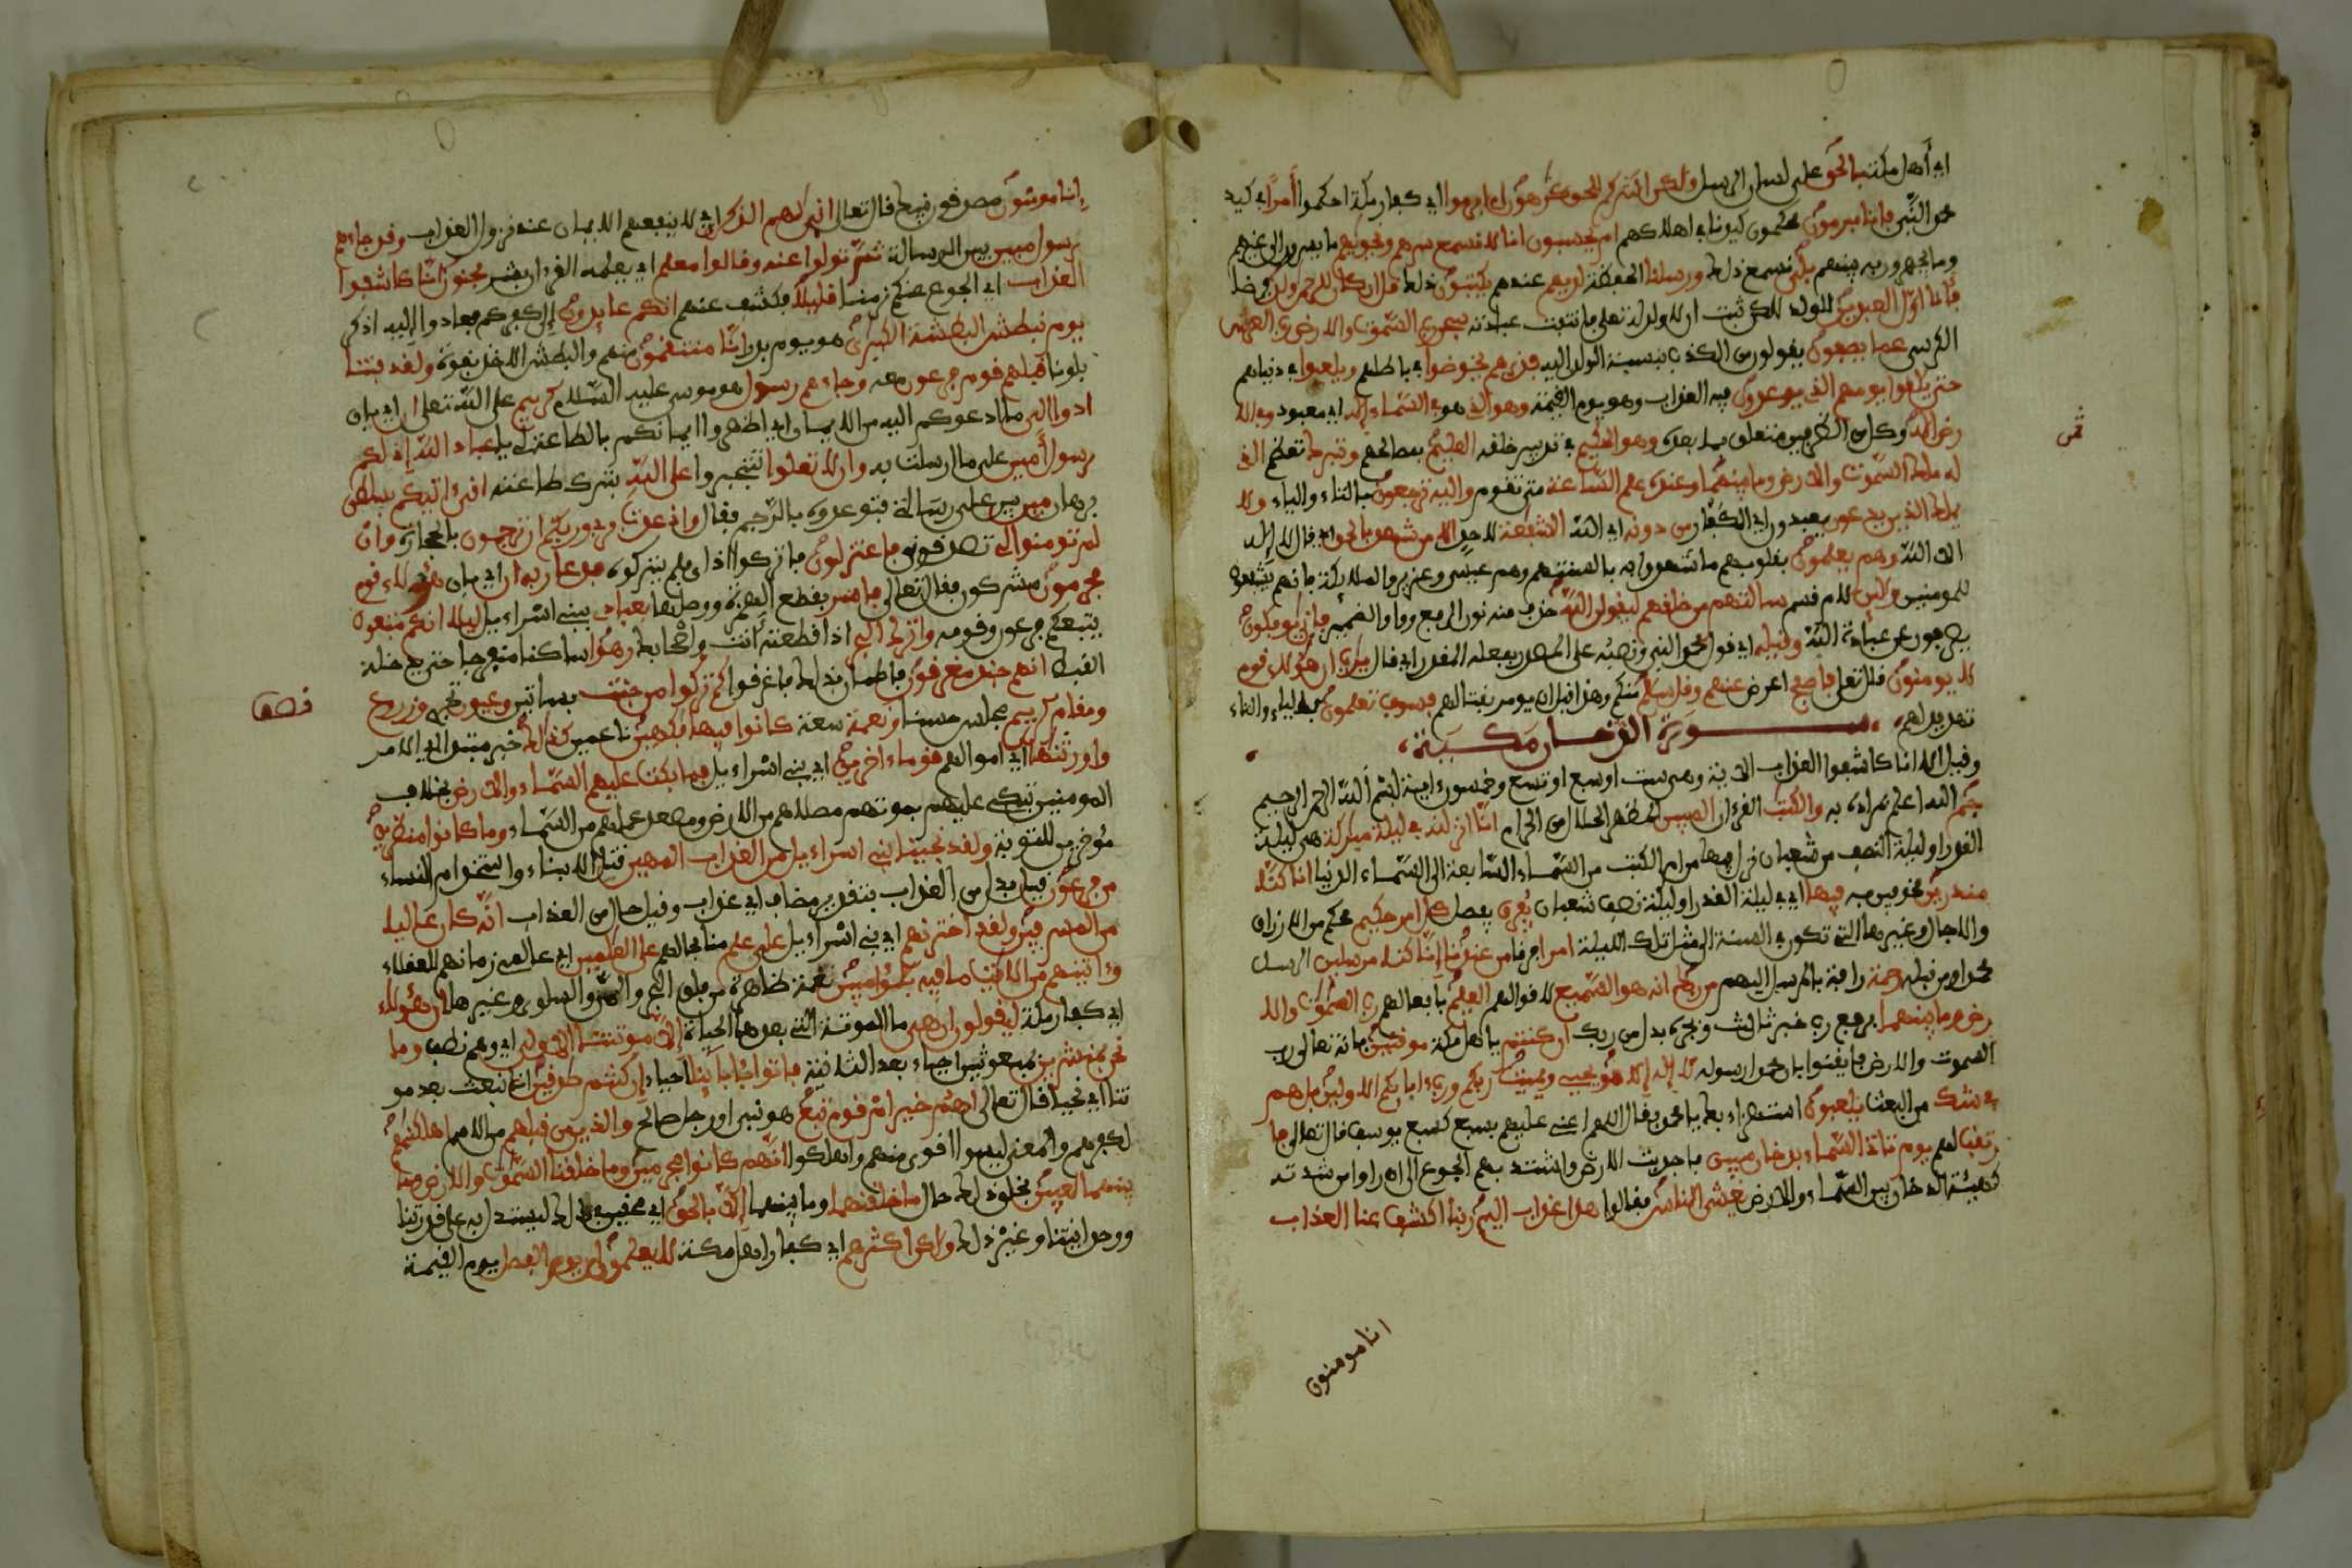 اي أهل مكة بالحق على لسان الرسل ولكن اكثركم للحق كرهون ام ابرموا اي كفار مكة احكموا أمرا في كيد
محمد النبي فإنا مبرمون محكمون كيدنا في اهلاكهم ام يحسبون انا لا نسمع سرهم ونجويهم ما يسرون الى غيرهم
وما يجهرون به بينهم بلى نسمع ذلك ورسلنا الحفظة لديهم عندهم يكتبون ذلك قل ان كان للرحمن ولد فرضا
فأنا اول العبدين للولد لكن ثبت ان لا ولد له تعلى فانتفت عبادته سبحن رب السموت والارض رب العرش
الكرسي عما يصفون يقولون من الكذب بنسبة الولد اليه فذرهم يخوضوا في باطلهم ويلعبوا في دنياهم
حتى يلقوا يومهم الذي يوعدون فيه العذاب وهو يوم القيمة وهو الذي هو في السماء إله اي معبود وفي الا
رض اله وكل من الظرفين متعلق بما بعده وهو الحكيم في تدبير خلقه العليم بمصالحهم وتبرك تعظم الذي
له ملك السموت والارض وما بينهما وعنده علم الساعة متى تقوم واليه ترجعون بالتاء والياء ولا
يملك الذين يدعون يعبدون اي الكفار من دونه اي الله الشفعة لاحد الا من شهد بالحق اي قال لا إله
الا الله وهم يعلمون بقلوبهم ما شهدوا به بالسنتهم وهم عيسى وعزير والملايكة فانهم يشفعون
للمومنين ولئن لام قسم سالتهم من خلقهم ليقولن الله حذف منه نون الرفع وواو الضمير فإنى يوفكون
يصرفون عن عبادة الله وقيله اي قول محمد النبي ونصبه على المصدر بفعله المقدر اي قال يرب ان هؤلاء قوم
لا يومنون قال تعلى فاصفح اعرض عنهم وقل سلم منكم وهذا قبل ان يومر بقتالهم فسوف تعلمون بالياء والتاء
تهديد لهم سورة الدخان مكية
وقيل الا انا كاشفوا العذاب الاية وهي ست او سبع او تسع وخمسون ءاية بسم الله الرحمن الرحيم
حم الله اعلم بمراده به والكتب القرءان المبين المظهر الحلال من الحرام انا انزلنه في ليلة مبركة هي ليلة
القدر او ليلة النصف من شعبان نزل فيها من ام الكتب من السماء السابعة الى السماء الدنيا انا كنا
منذرين مخوفين به فيها اي في ليلة القدر او ليلة نصف شعبان يفرق يفصل كل امر حكيم محكم من الارزاق
والاجال وغيرها التي تكون في السنة الى مثل تلك الليلة امرا فرقا من عندنا إنا كنا مرسلين الرسل
محمدا ومن قبله رحمة رافة بالمرسل اليهم من ربك انه هو السميع لاقوالهم العليم بافعالهم رب السموت والا
رض وما بينهما برفع رب خبر ثالث وبجره بدل من ربك ان كنتم يا اهل مكة موقنين بانه تعالى رب
السموت والارض فايقنوا بان محمدا رسوله لا إله إلا هو يحيي ويميت ربكم ورب ءابايكم الاولين بل هم
في شك من البعث يلعبون استهزاء بك يا محمد فقال اللهم اعني عليهم بسبع كسبع يوسف قال تعالى فا
رتقب لهم يوم تاتي السماء بدخان مبين فاجدبت الارض واشتد بهم الجوع الى ان راوا من شدته
كهيئة الدخان بين السماء والارض يغشى الناس فقالوا هذا عذاب اليم ربنا اكشف عنا العذاب
انا مومنون
ثمن
إنا مومنون مصدقون نبيك قال تعالى انى لهم الذكرى اي لا ينفعهم الايمان عند نزول العذاب وقد جاءهم
رسول مبين بين الرسالة ثم تولوا عنه وقالوا معلم اي يعلمه القرءان بشر مجنون انا كاشفوا
العذاب اي الجوع عنكم زمنا قليلا فكشف عنهم انكم عايدون إلى كفركم فعادوا اليه اذكر
يوم نبطش البطشة الكبرى هو يوم بدر انا منتقمون منهم والبطش الاخذ بقوة ولقد فتنا
بلونا قبلهم قوم فرعون معه وجاءهم رسول هو موسى عليه السلام كريم على الله تعلى ان اي بان
ادوا إلي ما ادعوكم اليه من الايمان اي اظهروا ايمانكم بالطاعة لي يا عباد الله إني لكم
رسول أمين على ما ارسلت به وان لا تعلوا تتجبروا على الله بترك طاعته اني ءاتيكم بسلطن
برهان مبين بين على رسالتي فتوعدوه بالرجم فقال واني عذت بربي وربكم ان ترجمون بالحجارة وان
لم تومنوا لي تصدقوني فاعتزلون فاتركوا اذاي فلم يتركوه فدعا ربه ان اي بان هؤلاء قوم
مجرمون مشركون فقال تعالى فاسر بقطع الهمزة ووصلها بعبادي ببني اسراءيل ليلا انكم متبعون
يتبعكم فرعون وقومه واترك البحر اذا قطعته أنت واصحابك رهوا ساكنا منفرجا حتى يدخله
القبط انهم جند مغرقون فاطمان بذلك فاغرقوا كم تركوا من جنت بساتين وعيون تجري وزروع
ومقام كريم مجلس حسن ونعمة متعة كانوا فيها فكهين ناعمين كذلك خبر مبتدا اي الامر
واورثنها اي اموالهم قوما ءاخرين اي بني اسراءيل فما بكت عليهم السماء والارض بخلاف
المومنين تبكي عليهم بموتهم مصلاهم من الارض ومصعد عملهم من السماء وما كانوا منظرين
مؤخرين للتوبة ولقد نجينا بني اسراءيل من العذاب المهين قتل الابناء واستخدام النساء
من فرعون قيل بدل من العذاب بتقدير مضاف اي عذاب وقيل حال من العذاب انه كان عاليا
من المسرفين ولقد اخترنهم اي بني اسراءيل على علم منا بحالهم على العلمين اي عالمي زمانهم العقلاء
وءاتينهم من الايت ما فيه بلؤا مبين نعمة ظاهرة من فلق البحر والمن والسلوى وغيرها ان هؤلاء
اي كفار مكة ليقولون إن هي ما الموتة التي بعدها الحياة إلا موتتنا الاولى اي وهم نطف وما
نحن بمنشرين مبعوثين احياء بعد الثانية فاتوا بآباينا احياء إن كنتم صدقين انا نبعث بعد مو
تتنا اي نحيا قال تعالى اهم خير ام قوم تبع هو نبي او رجل صالح والذين من قبلهم من الامم اهلكنهم
لكفرهم والمعنى ليسوا اقوى منهم واهلكوا انهم كانوا مجرمين وما خلقنا السموت والارض وما
بينهما لعبين بخلق ذلك حال ما خلقنهما وما بينهما إلا بالحق اي محقين في ذلك ليستدل به على قدرتنا
ووحدانيتنا وغير ذلك ولكن اكثرهم اي كفار اهل مكة لا يعلمون إن يوم الفصل يوم القيمة
نصف